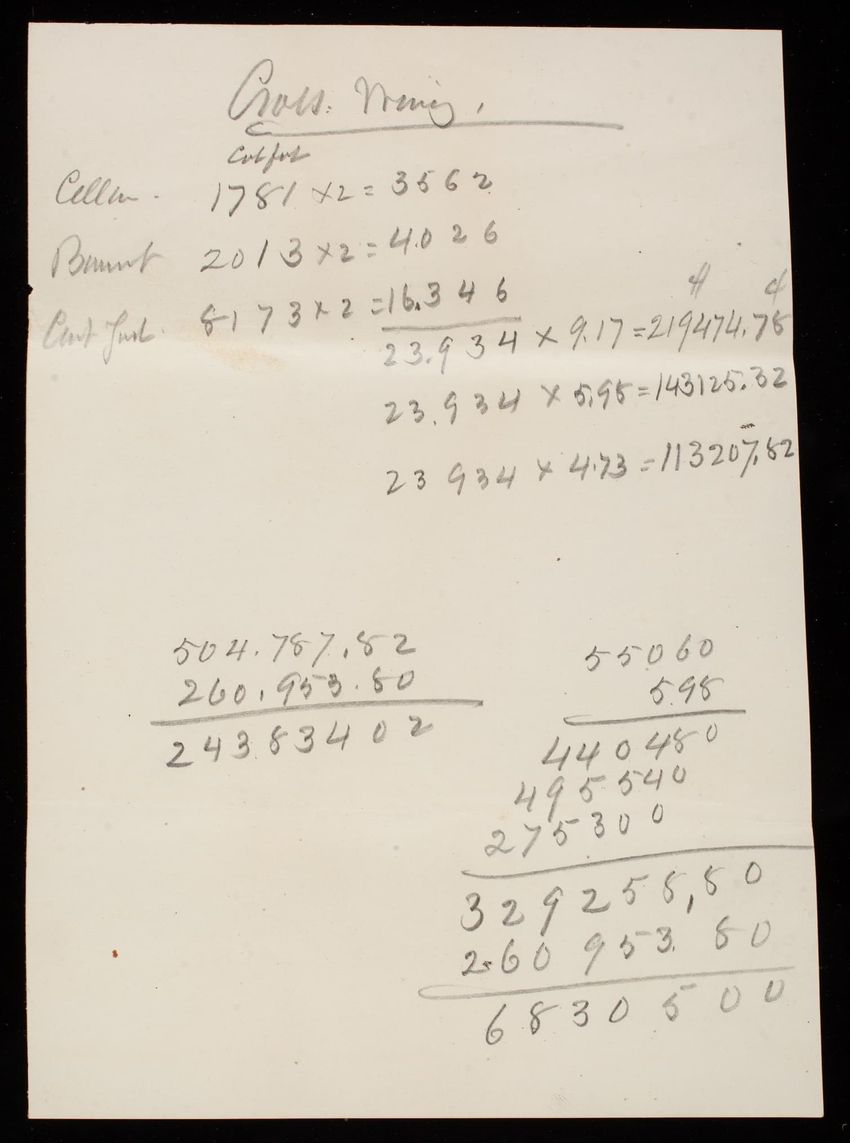 Cross. Wing.
Cellar. 1781 x2 = 3562
Basmnt 2013 x2 = 4.026
8173 x 2 = 16.346
23.934 x 9.17 = 219474.78
23.934 x 5.98 = 143125.32
23 934 x 4.73 = 113207.82
504.787.82
260.953.80
243.834 02
55060
5.98
440480
495540
275300
329258.80
260 953. 80
6830 5 00